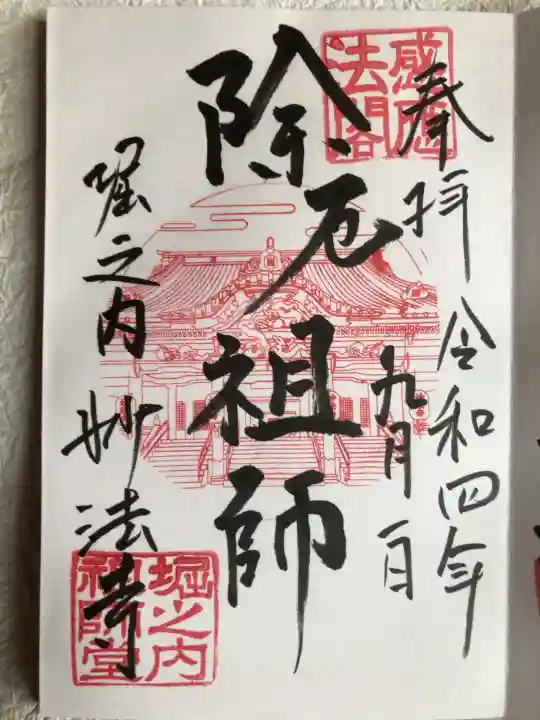 奉拝 令和四年
九月一日
除厄祖師
堀之内 妙法寺
感應
法閣
堀之内
祖師堂